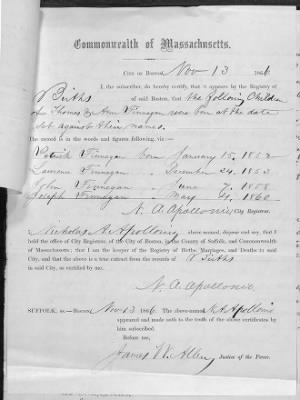 Commonwealth of Massachusetts.
CITY OF BOSTON, Nov 13 1866
I, the subscriber, do hereby certify, that it appears by the Registry of
Births of said Boston, that the following Children
of Thomas & Ann Finegan were born at the date
set against their names.
The record is in the words and figures following, viz:—
Patrick Finegan born January 15, 1852
Finegan " December 24, 1853
John Finnegan " June 7, 1858
Joseph Finnegan " May 4, 1860
N. A. Apollonio, City Registrar.
I, Nicholas A. Apollonio above named, depose and say, that I
hold the office of City Registrar, of the City of Boston, in the County of Suffolk, and Commonwealth
of Massachusetts; that I am the keeper of the Registry of Births, Marriages, and Deaths in said
City, and that the above is a true extract from the records of Births
in said City, as certified by me.
N. A. Apollonio.
SUFFOLK, ss.—BOSTON, Nov 13 1866 The above-named N A Apollonio
appeared and made oath to the truth of the above certificates by
him subscribed.
Before me,
James W. Allen Justice of the Peace.